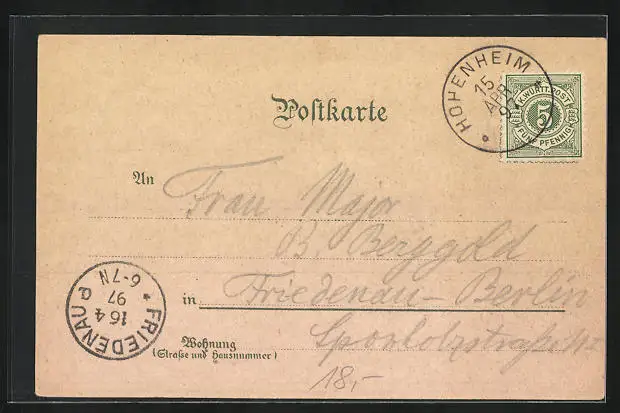 HOHENHEIM
15 APR 97
K. WÜRTT. POST
5
FÜNF PFENNIG
Postkarte
An Frau Major
B. Berggold
in Friedenau-Berlin
Wohnung
(Straße und Hausnummer)
FRIEDENAU
16 4
97
6-7N
18,-